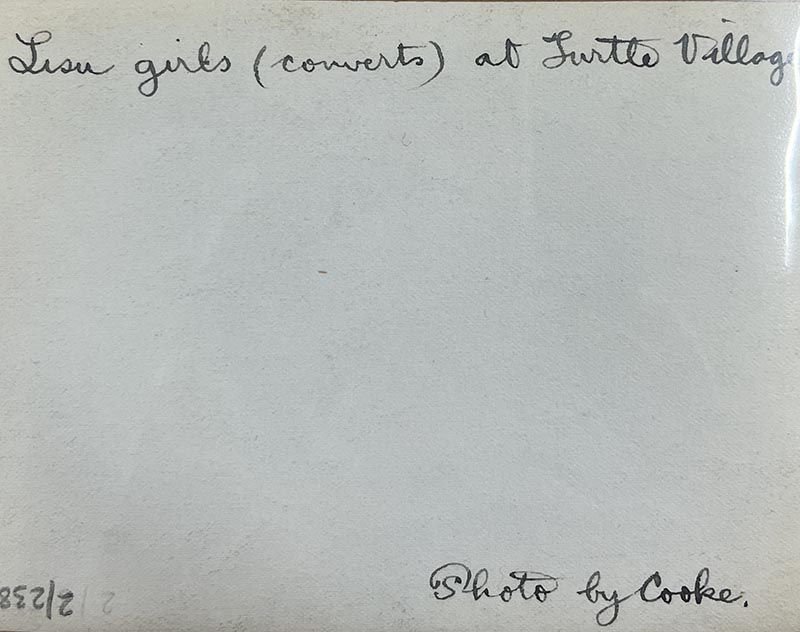 Lisu girls (converts) at Turtle Village
Photo by Cooke.
2/238